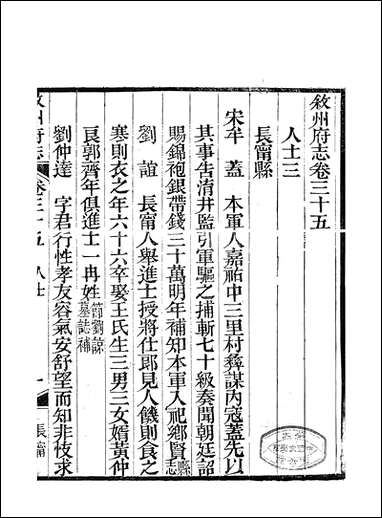 敘州府志卷三十五
人士三
長甯縣
宋牟 蓋 本軍人嘉祐中三里村彝謀內寇蓋先以
其事告清井監引軍驅之捕斬七十級奏聞朝廷詔
賜錦袍銀帶錢三十萬明年補知本軍入祀鄉賢縣志
劉 誼 長甯人舉進士授將仕郎見人饑則食之
寒則衣之年六十六卒娶王氏生三男三女婿黃仲
良郭齊年俱進士一冉姓節劉諒墓誌補
劉仲達 字君行性孝友容氣安舒望而知非忮求
敘州府志 卷三十五 人士 一 長編